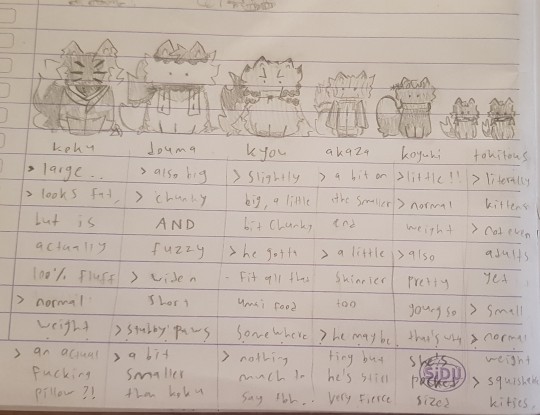 koku
> large..
> looks fat,
but is
actually
100% fluff
> normal
weight
> an actual
fucking
pillow ?!
douma
> also big
> chunky
AND
fuzzy
> wide n
short
> stubby paws
> a bit
smaller
than koku
kyou
> slightly
big, a little
bit chunky
> he gotta
fit all that
umai food
somewhere
> nothing
much to
say tbh..
akaza
> a bit on
the smaller
end
> a little
skinnier
too
> he may be
tiny but
he's still
very fierce
koyuki
> little!!
> normal
weight
> also
pretty
young so
that's why
she's
pocket
sized
tokitous
> literally
kittens
> not even
adults
yet
> small
> normal
weight
> squishem
kities.
SJDU